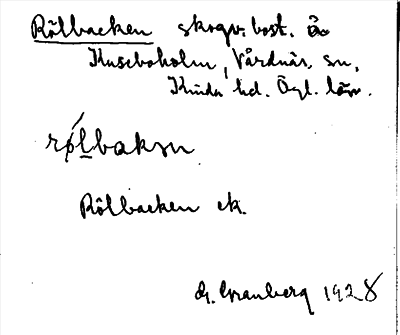 Rölbacken skogv. bost. å
Husbyholm, Vårdnäs sn,
Kinda hd. Ögl. län.
rølbakən
Rölbacken ek.
G. Granberg 1928